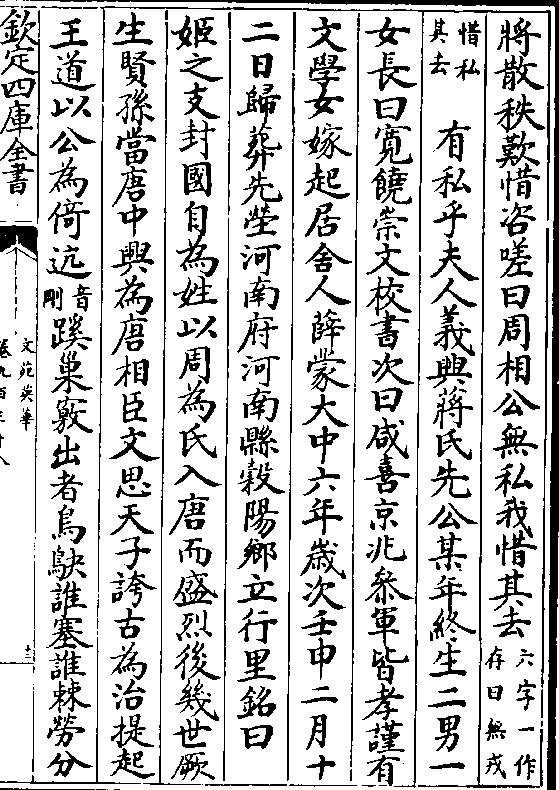 將散秩歎惜咨嗟曰周相公無私我惜其去六字一作存日無戎
惜私其去有私乎夫人義興蔣氏先公某年終生二男一
女長曰寬饒崇文校書次曰咸喜京兆叅軍皆孝謹有
文學女嫁起居舍人薛蒙大中六年歲次壬申二月十
二日歸葬先塋河南府河南縣穀陽鄉立行里銘曰
姬之支封國自為姓以周為氏入唐而盛烈後幾世厥
生賢孫當唐中興為唐相臣文思天子誇古為治提起
王道以公為倚远音剛蹊巢竅出者烏駃誰塞誰棘勞分
欽定四庫全書
文苑英華
十二